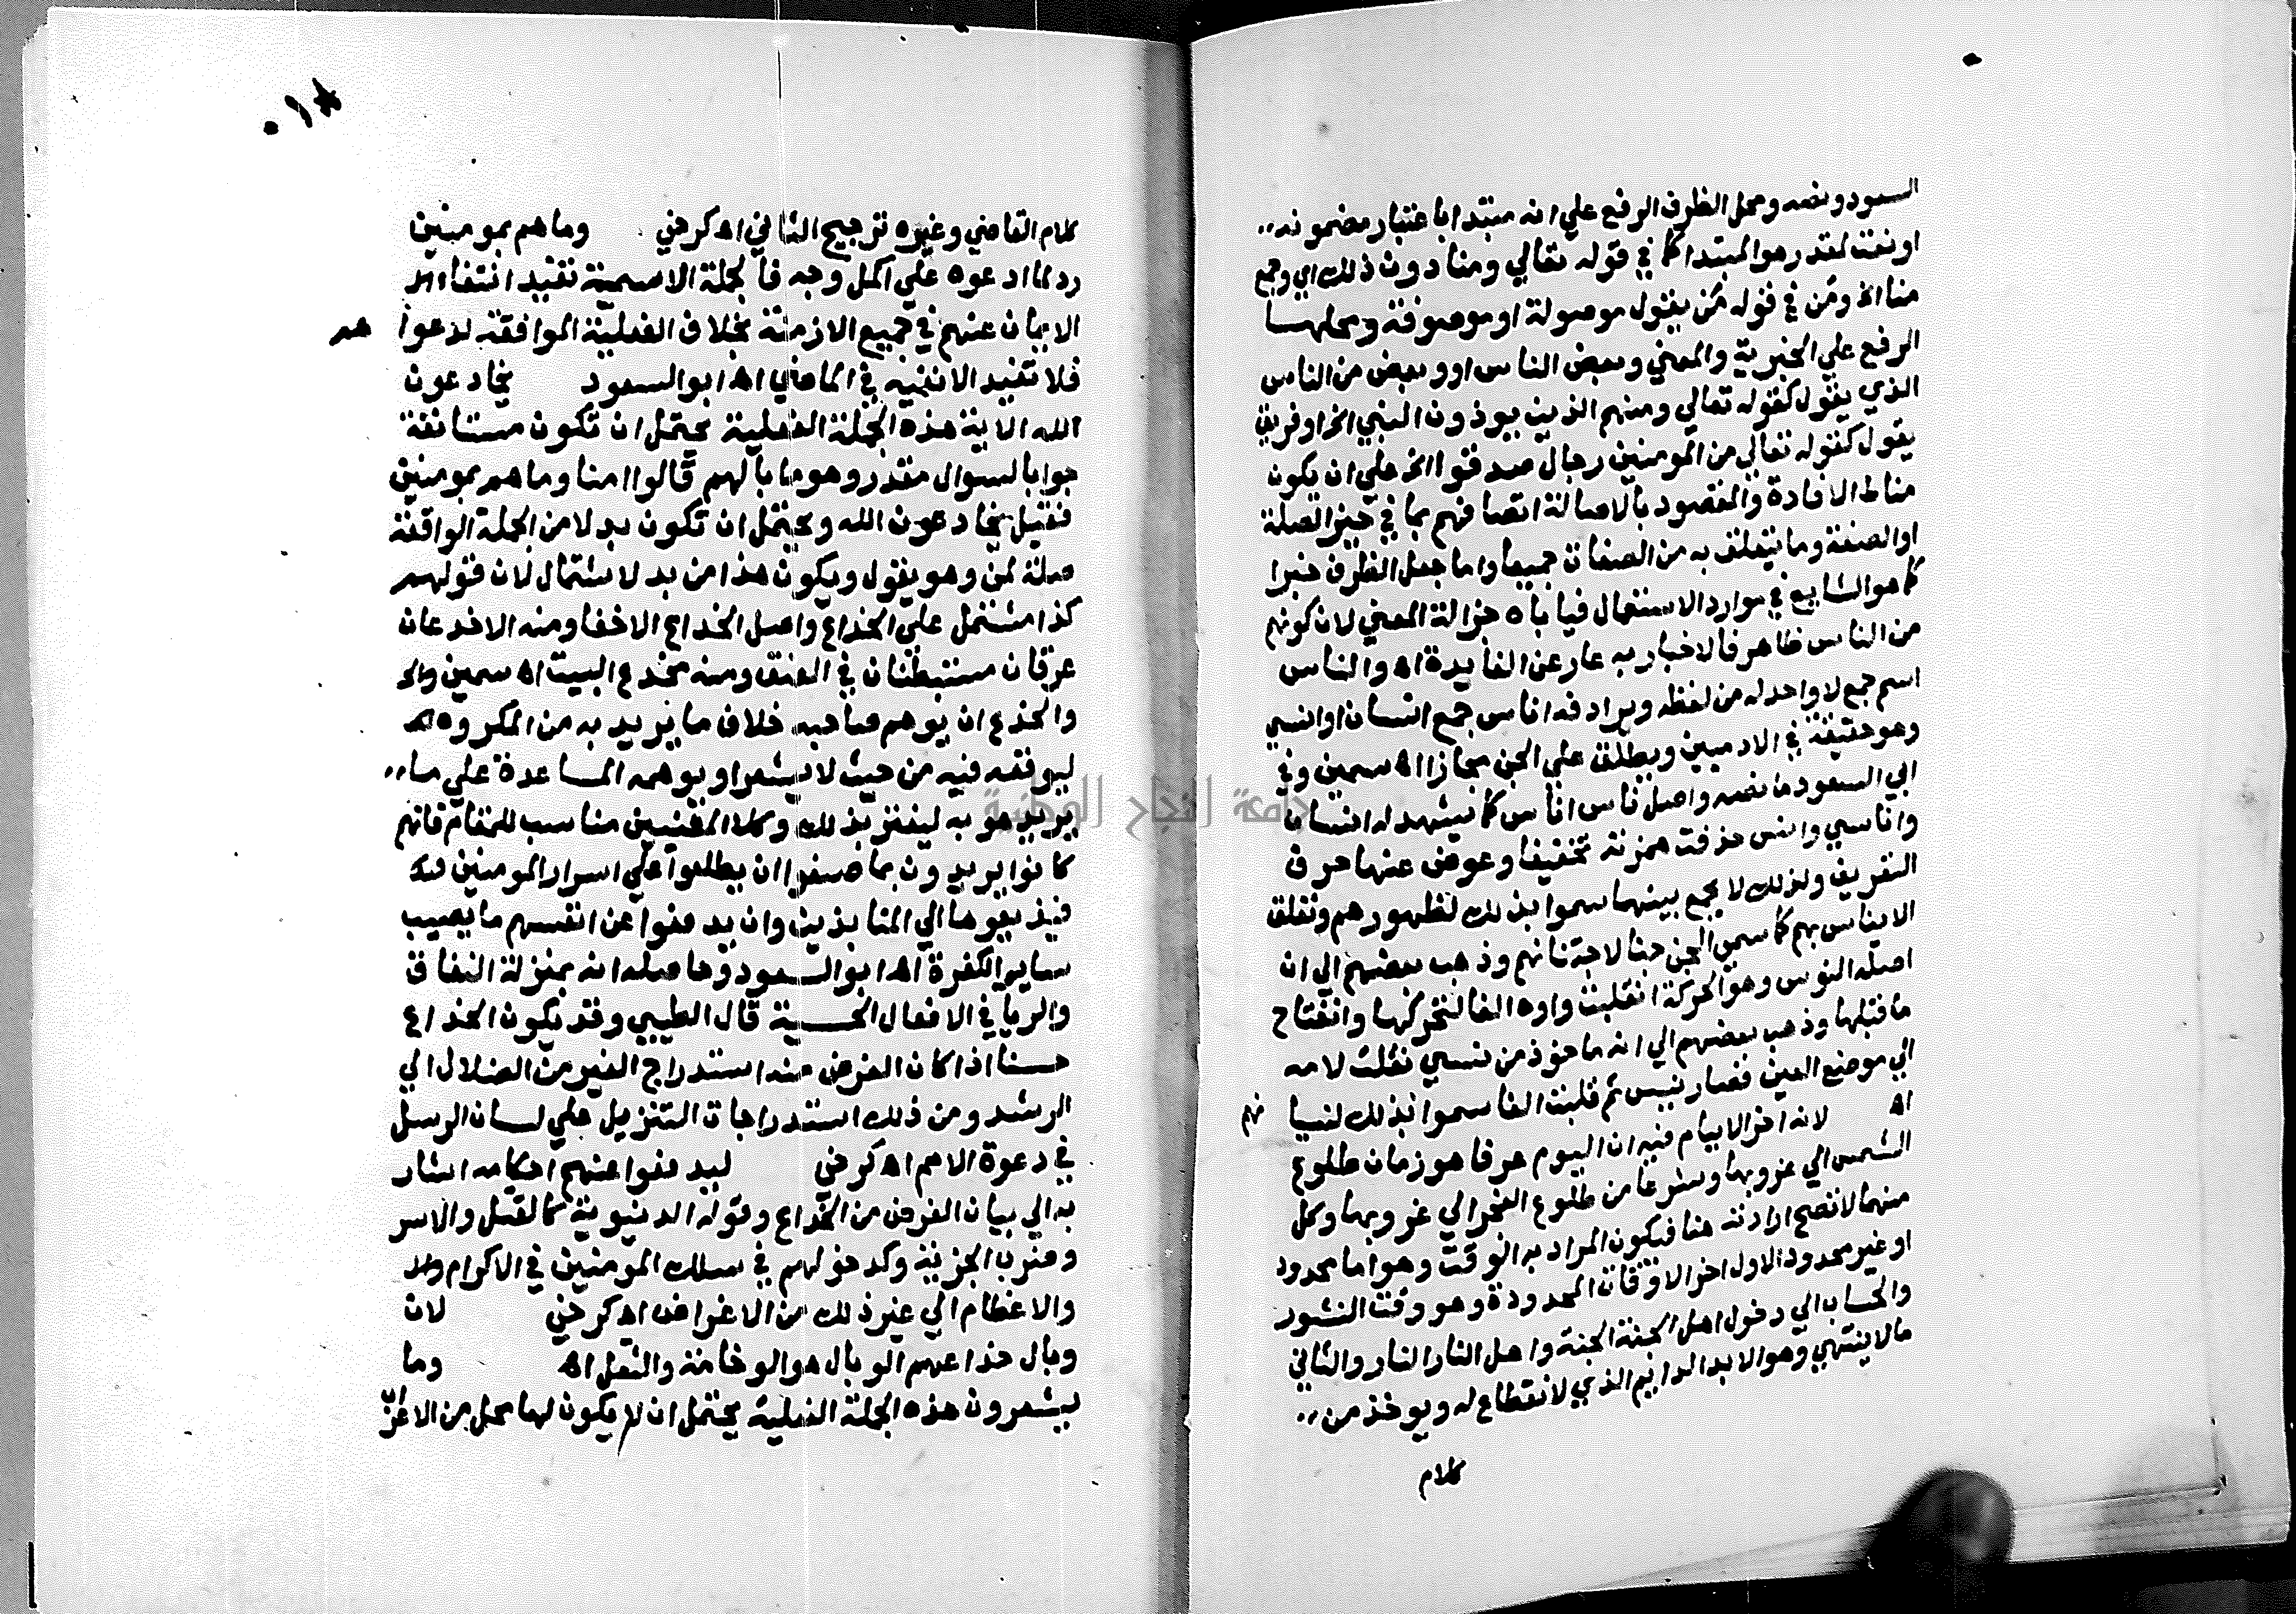 السعود ونصه ومحل الظرف الرفع علي انه مبتدا باعتبار مضمونه
او نعت لمقدر هو المبتدا كما في قوله تعالي ومنا دون ذلك اي وجمع
منا الخ ومن في قوله من يقول موصولة او موصوفة ومحلهـا
الرفع علي الخبرية والمعني وبعض الناس او وبعض من الناس
الذي يقول كقوله تعالي ومنهم الذين يوذون النبي الخ او فريق
يقول كقوله تعالي من المومنين رجال صدقوا الخ علي ان يكون
مناط الافادة والمقصود بالاصالة اتصافهم بما في حيز الصلة
او الصفة وما يتعلق به من الصفات جميعا واما جعل الظرف خبرا
كما هو الشايع في موارد الاستعمال فياباه جزالة المعني لان كونهم
من الناس ظاهر فالاخبار به عار عن الفايدة اه والناس
اسم جمع لا واحد له من لفظه ويرادفه اناس جمع انسان او انسي
وهو حقيقة في الادميين ويطلق علي الجن مجازا اه سمين وفي
ابي السعود ما نصه واصل ناس اناس كما يشهد له انسان
واناسي وانس حذفت همزته تخفيفا وعوض عنها حرف
التعريف ولذلك لا يجمع بينهما سموا بذلك لظهورهم وتعلق
الايناس بهم كما سمي الجن جنا لاجتنانهم وذهب بعضهم الي ان
اصله النوس وهو الحركة انقلبت واوه الفا لتحركها وانفتاح
ما قبلها وذهب بعضهم الي انه ماخوذ من نسي نقلت لامه
الي موضع العين فصار نيس ثم قلبت الفا سموا بذلك لنسيا نهم
اه لانه اخر الايام فيه ان اليوم عرفا هو زمان طلوع
الشمس الي غروبها وشرعا من طلوع الفجر الي غروبها وكل
منهما لا تصح ارادته هنا فيكون المراد به الوقت وهو اما محدود
او غير محدود الاول اخر الاوقات المحدودة وهو وقت النشور
والحساب الي دخول اهل الجنة الجنة واهل النار النار والثاني
ما لا ينتهي وهو الابد الدايم الذي لا نقطاع له ويوخذ من
كلام
كلام القاضي وغيره ترجيح الثاني اه كرخي وما هم بمومنين
رد لما ادعوه علي اكمل وجه فالجملة الاسمية تفيد انتفاء
الايمان عنهم في جميع الازمنة بخلاف الفعلية الموافقة لدعوا هم
فلا تفيد الا نفيه في الماضي اه ابو السعود يخادعون
الله الاية هذه الجملة الفعلية يحتمل ان تكون مستانفة
جوابا لسوال مقدر وهو ما بالهم قالوا امنا وما هم بمومنين
فقيل يخادعون الله ويحتمل ان تكون بدلا من الجملة الواقعة
صلة لمن وهو يقول ويكون هذا من بدل الاشتمال لان قولهم
كذا مشتمل علي الخداع واصل الخداع الاخفا ومنه الاخدعان
عرقان مستبطنان في العنق ومنه مخدع البيت اه سمين
والخدع ان يوهم صاحبه خلاف ما يريد به من المكروه
ليوقعه فيه من حيث لا يشعر او يوهمه المساعدة علي ما
يريد هو به ليغتر بذلك وكلا المعنيين مناسب للمقام فانهم
كانوا يريدون بما صنعوا ان يطلعوا علي اسرار المومنين
فيذيعوها الي المنابذين وان يدفعوا عن انفسهم ما يصيب
ساير الكفرة اه ابو السعود وحاصله انه بمنزلة النفاق
والريا في الافعال الحسية قال الطيبي وقد يكون الخداع
حسنا اذا كان الغرض منه استدراج الغير من الضلال الي
الرشد ومن ذلك استدراجات التنزيل علي لسان الرسل
في دعوة الامم اه كرخي ليدفعوا عنهم احكامه اشار
به الي بيان الغرض من الخداع وقوله الدنيوية كالقتل والاسر
وضرب الجزية وكدخولهم في سلك المومنين في الاكرام
والاعظام الي غير ذلك من الاغراض اه كرخي لان
وبال خداعهم الوبال هو الوخامة والثقل اه وما
يشعرون هذه الجملة الفعلية يحتمل ان لا يكون لها محل من الاعر
جامعة النجاح الوطنية